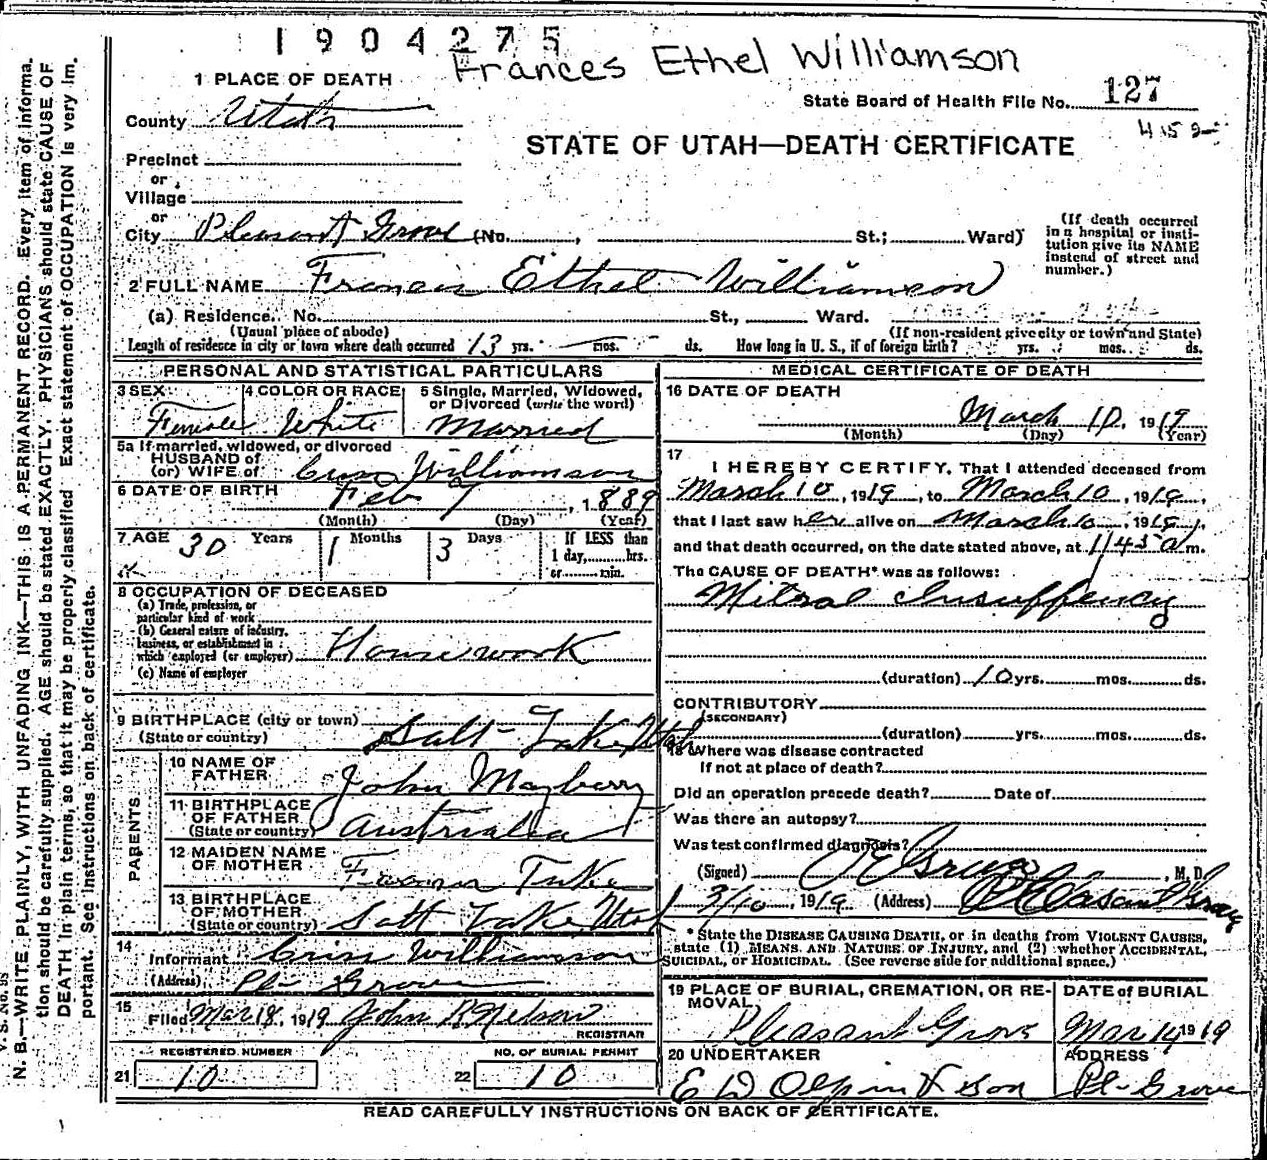 1904275
Frances Ethel Williamson
1 PLACE OF DEATH
State Board of Health File No. 127
County Utah
STATE OF UTAH—DEATH CERTIFICATE
Precinct
or
Village
or
City Pleasant Grove (No. , St.; Ward)
(If death occurred in a hospital or institution give its NAME instead of street and number.)
2 FULL NAME Francis Ethel Williamson
(a) Residence. No. St., Ward.
(Usual place of abode) (If non-resident give city or town and State)
Length of residence in city or town where death occurred 13 yrs. mos. ds. How long in U. S., if of foreign birth? yrs. mos. ds.
PERSONAL AND STATISTICAL PARTICULARS
3 SEX 4 COLOR OR RACE 5 Single, Married, Widowed, or Divorced (write the word)
Female White Married
5a If married, widowed, or divorced
HUSBAND of
(or) WIFE of Criss Williamson
6 DATE OF BIRTH Feb 7, 1889
(Month) (Day) (Year)
7 AGE 30 Years 1 Months 3 Days If LESS than
1 day, hrs.
or min.
8 OCCUPATION OF DECEASED
(a) Trade, profession, or
particular kind of work
(b) General nature of industry,
business, or establishment in
which employed (or employer) Housework
(c) Name of employer
9 BIRTHPLACE (city or town)
(State or country) Salt Lake Utah
PARENTS
10 NAME OF
FATHER John Mayberry
11 BIRTHPLACE
OF FATHER
(State or country) Australia
12 MAIDEN NAME
OF MOTHER
13 BIRTHPLACE
OF MOTHER
(State or country) Salt Lake Utah
14
Informant Criss Williamson
(Address) Pl- Grove
15
Filed Mar 18, 1919 John R Nelson
REGISTRAR
REGISTERED NUMBER NO. OF BURIAL PERMIT
21 10 22 10
MEDICAL CERTIFICATE OF DEATH
16 DATE OF DEATH
March 10, 1919
(Month) (Day) (Year)
17
I HEREBY CERTIFY, That I attended deceased from
March 10, 1919, to March 10, 1919,
that I last saw her alive on March 10, 1919,
and that death occurred, on the date stated above, at 1145 a m.
The CAUSE OF DEATH* was as follows:
Mitral Insuffency
(duration) 10 yrs. mos. ds.
CONTRIBUTORY
(SECONDARY)
(duration) yrs. mos. ds.
18 Where was disease contracted
If not at place of death?
Did an operation precede death? Date of
Was there an autopsy?
Was test confirmed diagnosis?
(Signed) , M. D.
3/10, 1919 (Address) Pleasant Grove
* State the DISEASE CAUSING DEATH, or in deaths from VIOLENT CAUSES,
state (1) MEANS AND NATURE OF INJURY, and (2) whether ACCIDENTAL,
SUICIDAL, or HOMICIDAL. (See reverse side for additional space.)
19 PLACE OF BURIAL, CREMATION, OR REMOVAL DATE of BURIAL
Pleasant Grove Mar 14 1919
20 UNDERTAKER ADDRESS
E D Olpin & Son Pl- Grove
READ CAREFULLY INSTRUCTIONS ON BACK OF CERTIFICATE.
V. S. No. 95
N. B.—WRITE PLAINLY, WITH UNFADING INK—THIS IS A PERMANENT RECORD. Every item of informa-
tion should be carefully supplied. AGE should be stated EXACTLY. PHYSICIANS should state CAUSE OF
DEATH in plain terms, so that it may be properly classified. Exact statement of OCCUPATION is very im-
portant. See instructions on back of certificate.